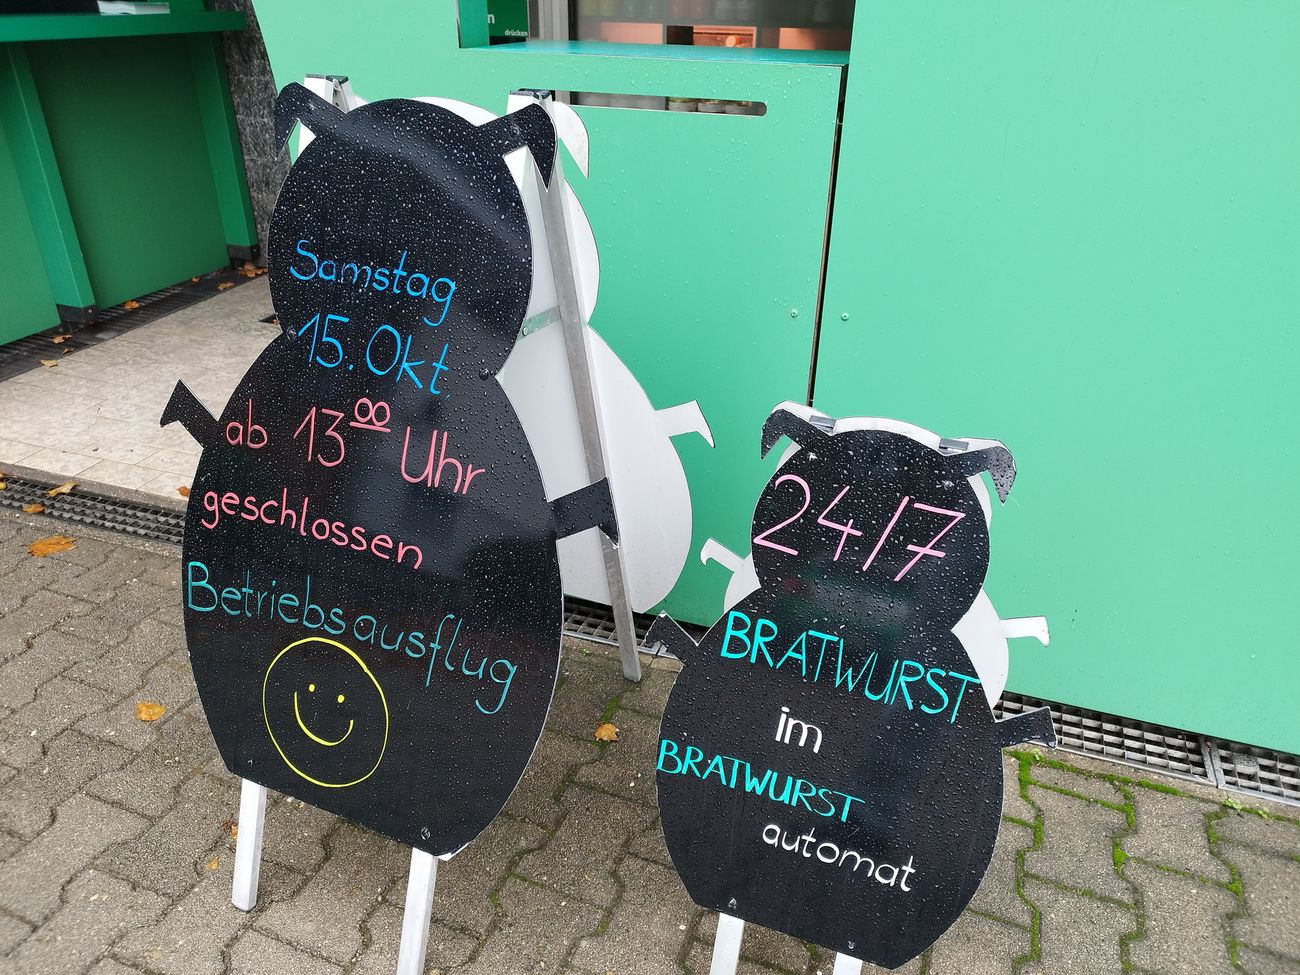 drücken
Samstag
15. Okt.
ab 13⁰⁰ Uhr
geschlossen
Betriebsausflug
24/7
BRATWURST
im
BRATWURST
automat